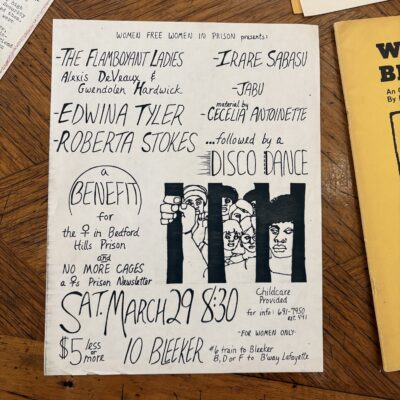 WOMEN FREE WOMEN IN PRISON presents:
-THE FLAMBOYANT LADIES
Alexis DeVeaux &
Gwendolen Hardwick
-EDWINA TYLER
-ROBERTA STOKES
-IRARE SABASU
-JABU
material by
-CECELIA ANTOINETTE
...followed by a
DISCO DANCE
a
BENEFIT
for
the ♀ in Bedford
Hills Prison
and
NO MORE CAGES
a ♀s Prison Newsletter
SAT. MARCH 29 8:30
Childcare
Provided
for info: 691-7950
ext. 441
-FOR WOMEN ONLY-
$5 less
or
more
10 BLEEKER
#6 train to Bleeker
B, D or F to B'way Lafayette
W
B
An
By